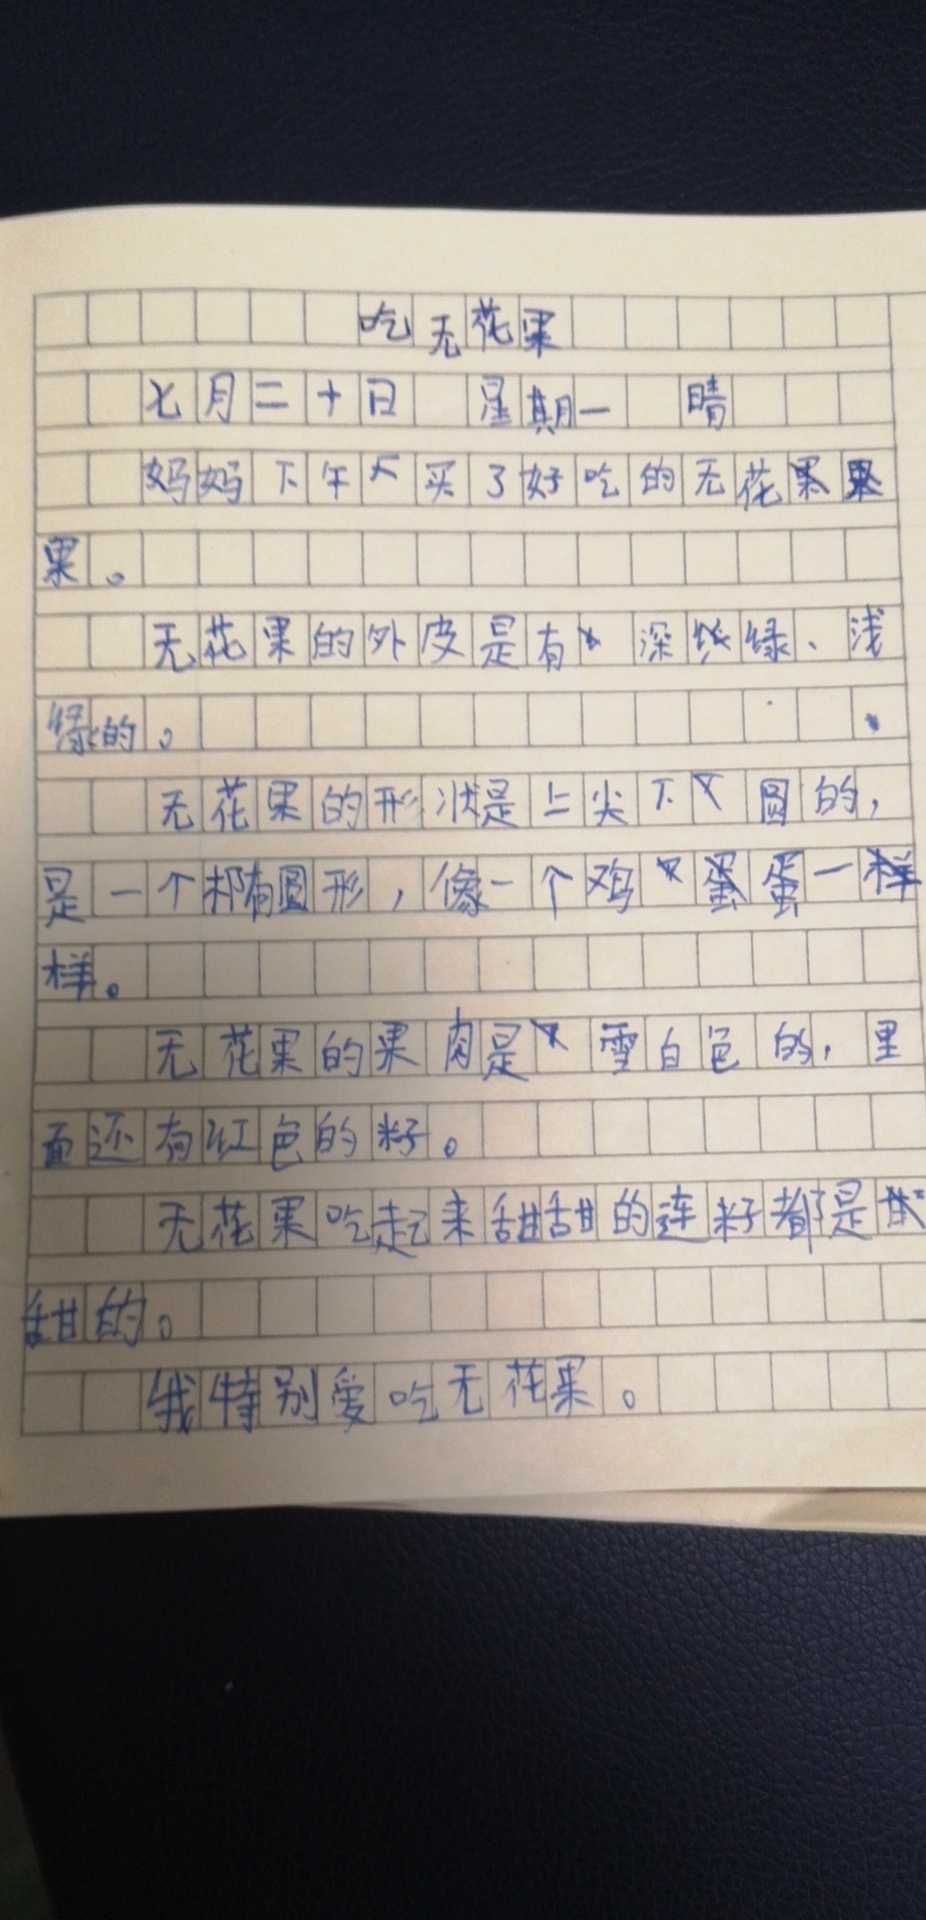 吃无花果
七月二十日 星期一 晴
妈妈下午买了好吃的无花
果。
无花果的外皮是有深绿、浅
绿的。
无花果的形状是上尖下圆的,
是一个椭圆形,像一个鸡蛋一
样。
无花果的果肉是雪白色的,里
面还有红色的籽。
无花果吃起来甜甜的连籽都是
甜的。
我特别爱吃无花果。